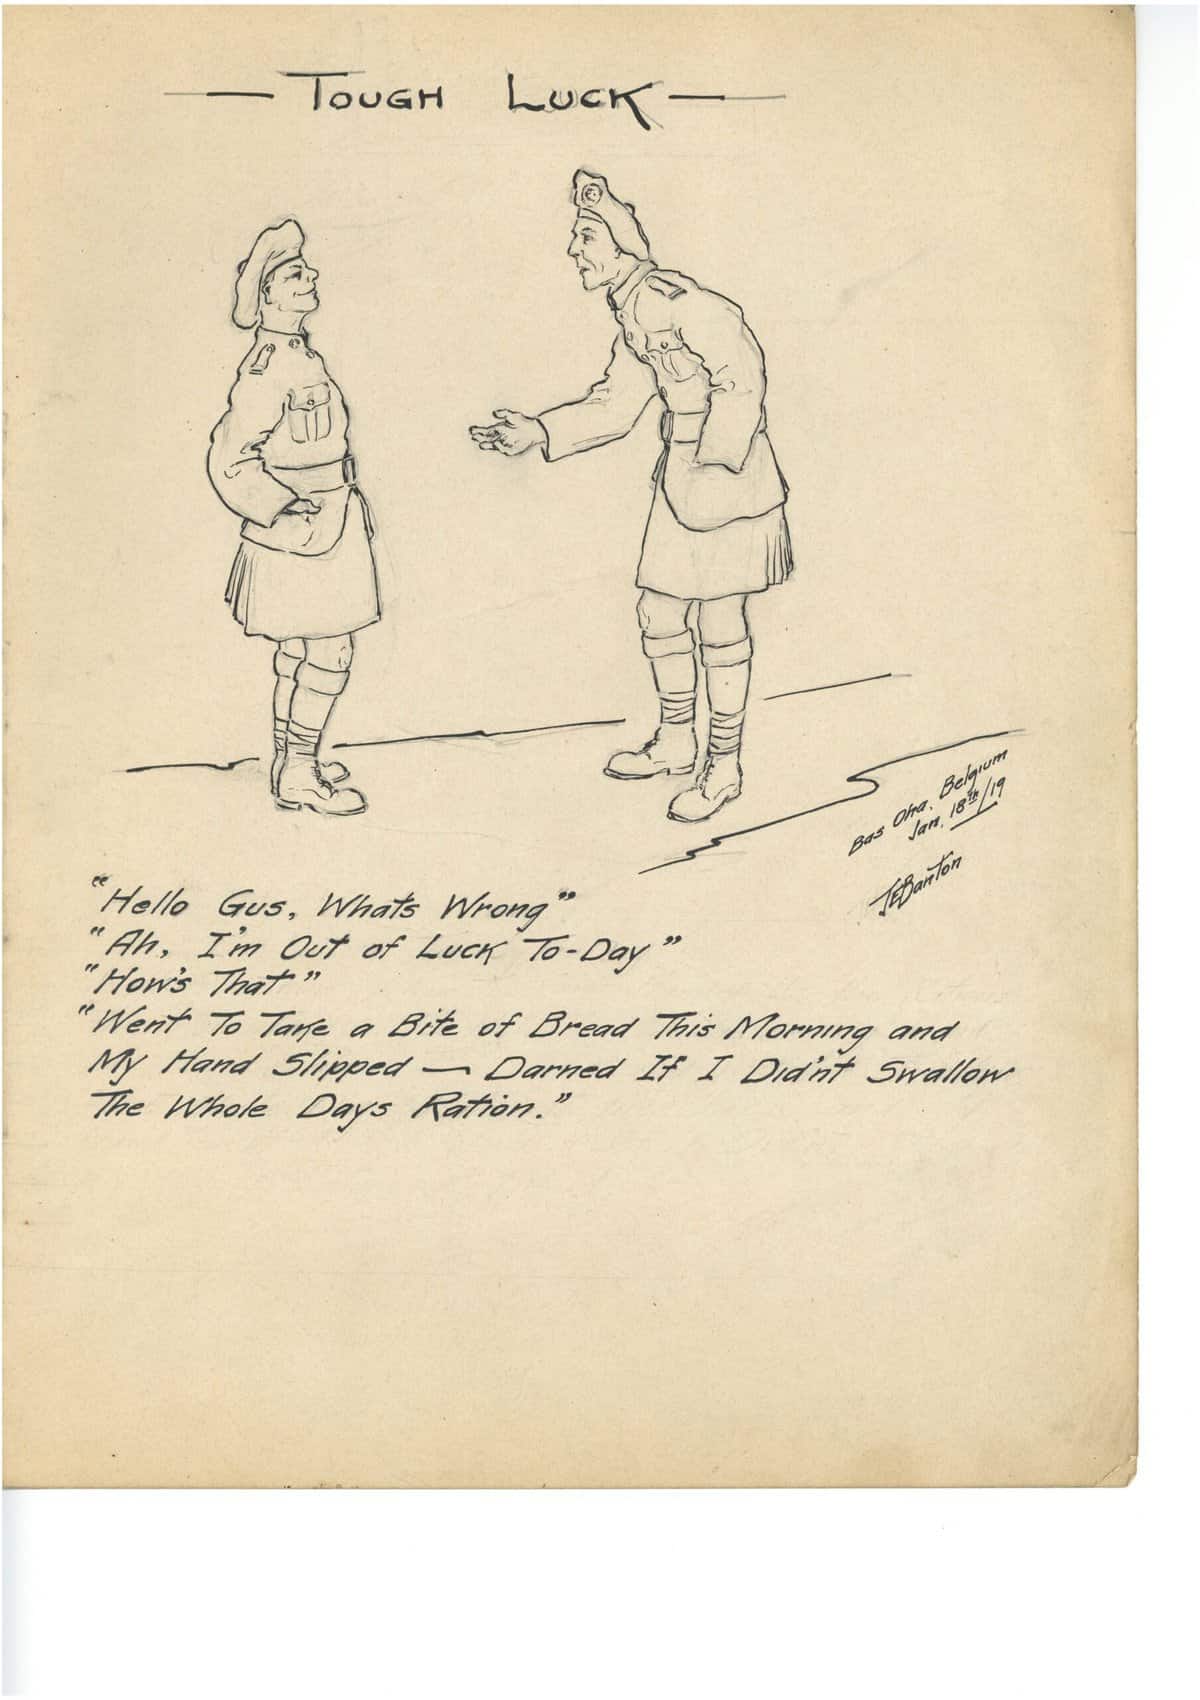 — TOUGH LUCK —
Bas Oha, Belgium
Jan. 18th/19
JEBanton
"Hello Gus, Whats Wrong"
"Ah, I'm Out of Luck To-Day"
"How's That"
"Went To Take a Bite of Bread This Morning and
My Hand Slipped — Darned If I Did'nt Swallow
The Whole Days Ration."